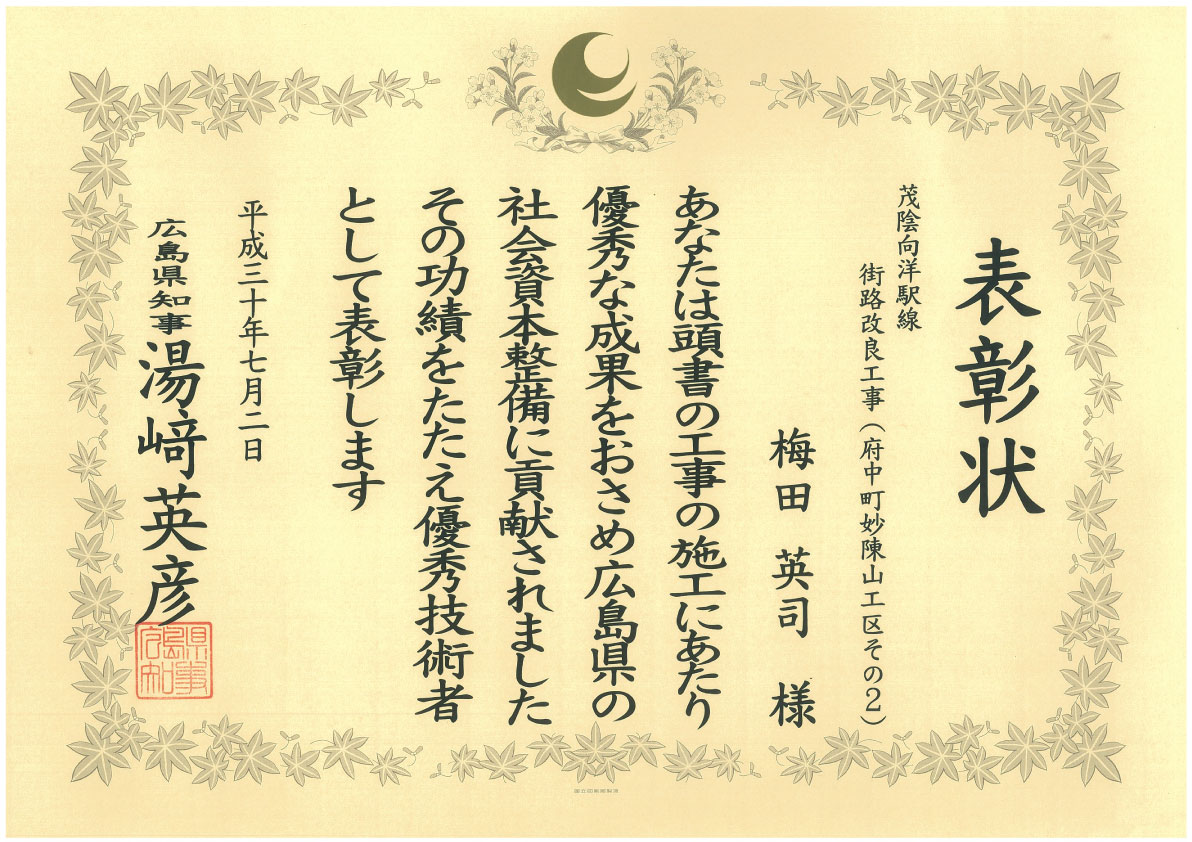 表彰状
茂陰向洋駅線
街路改良工事（府中町妙陳山工区その２）
梅田 英司 様
あなたは頭書の工事の施工にあたり
優秀な成果をおさめ広島県の
社会資本整備に貢献されました
その功績をたたえ優秀技術者
として表彰します
平成三十年七月二日
広島県知事 湯﨑英彦
広島県知事